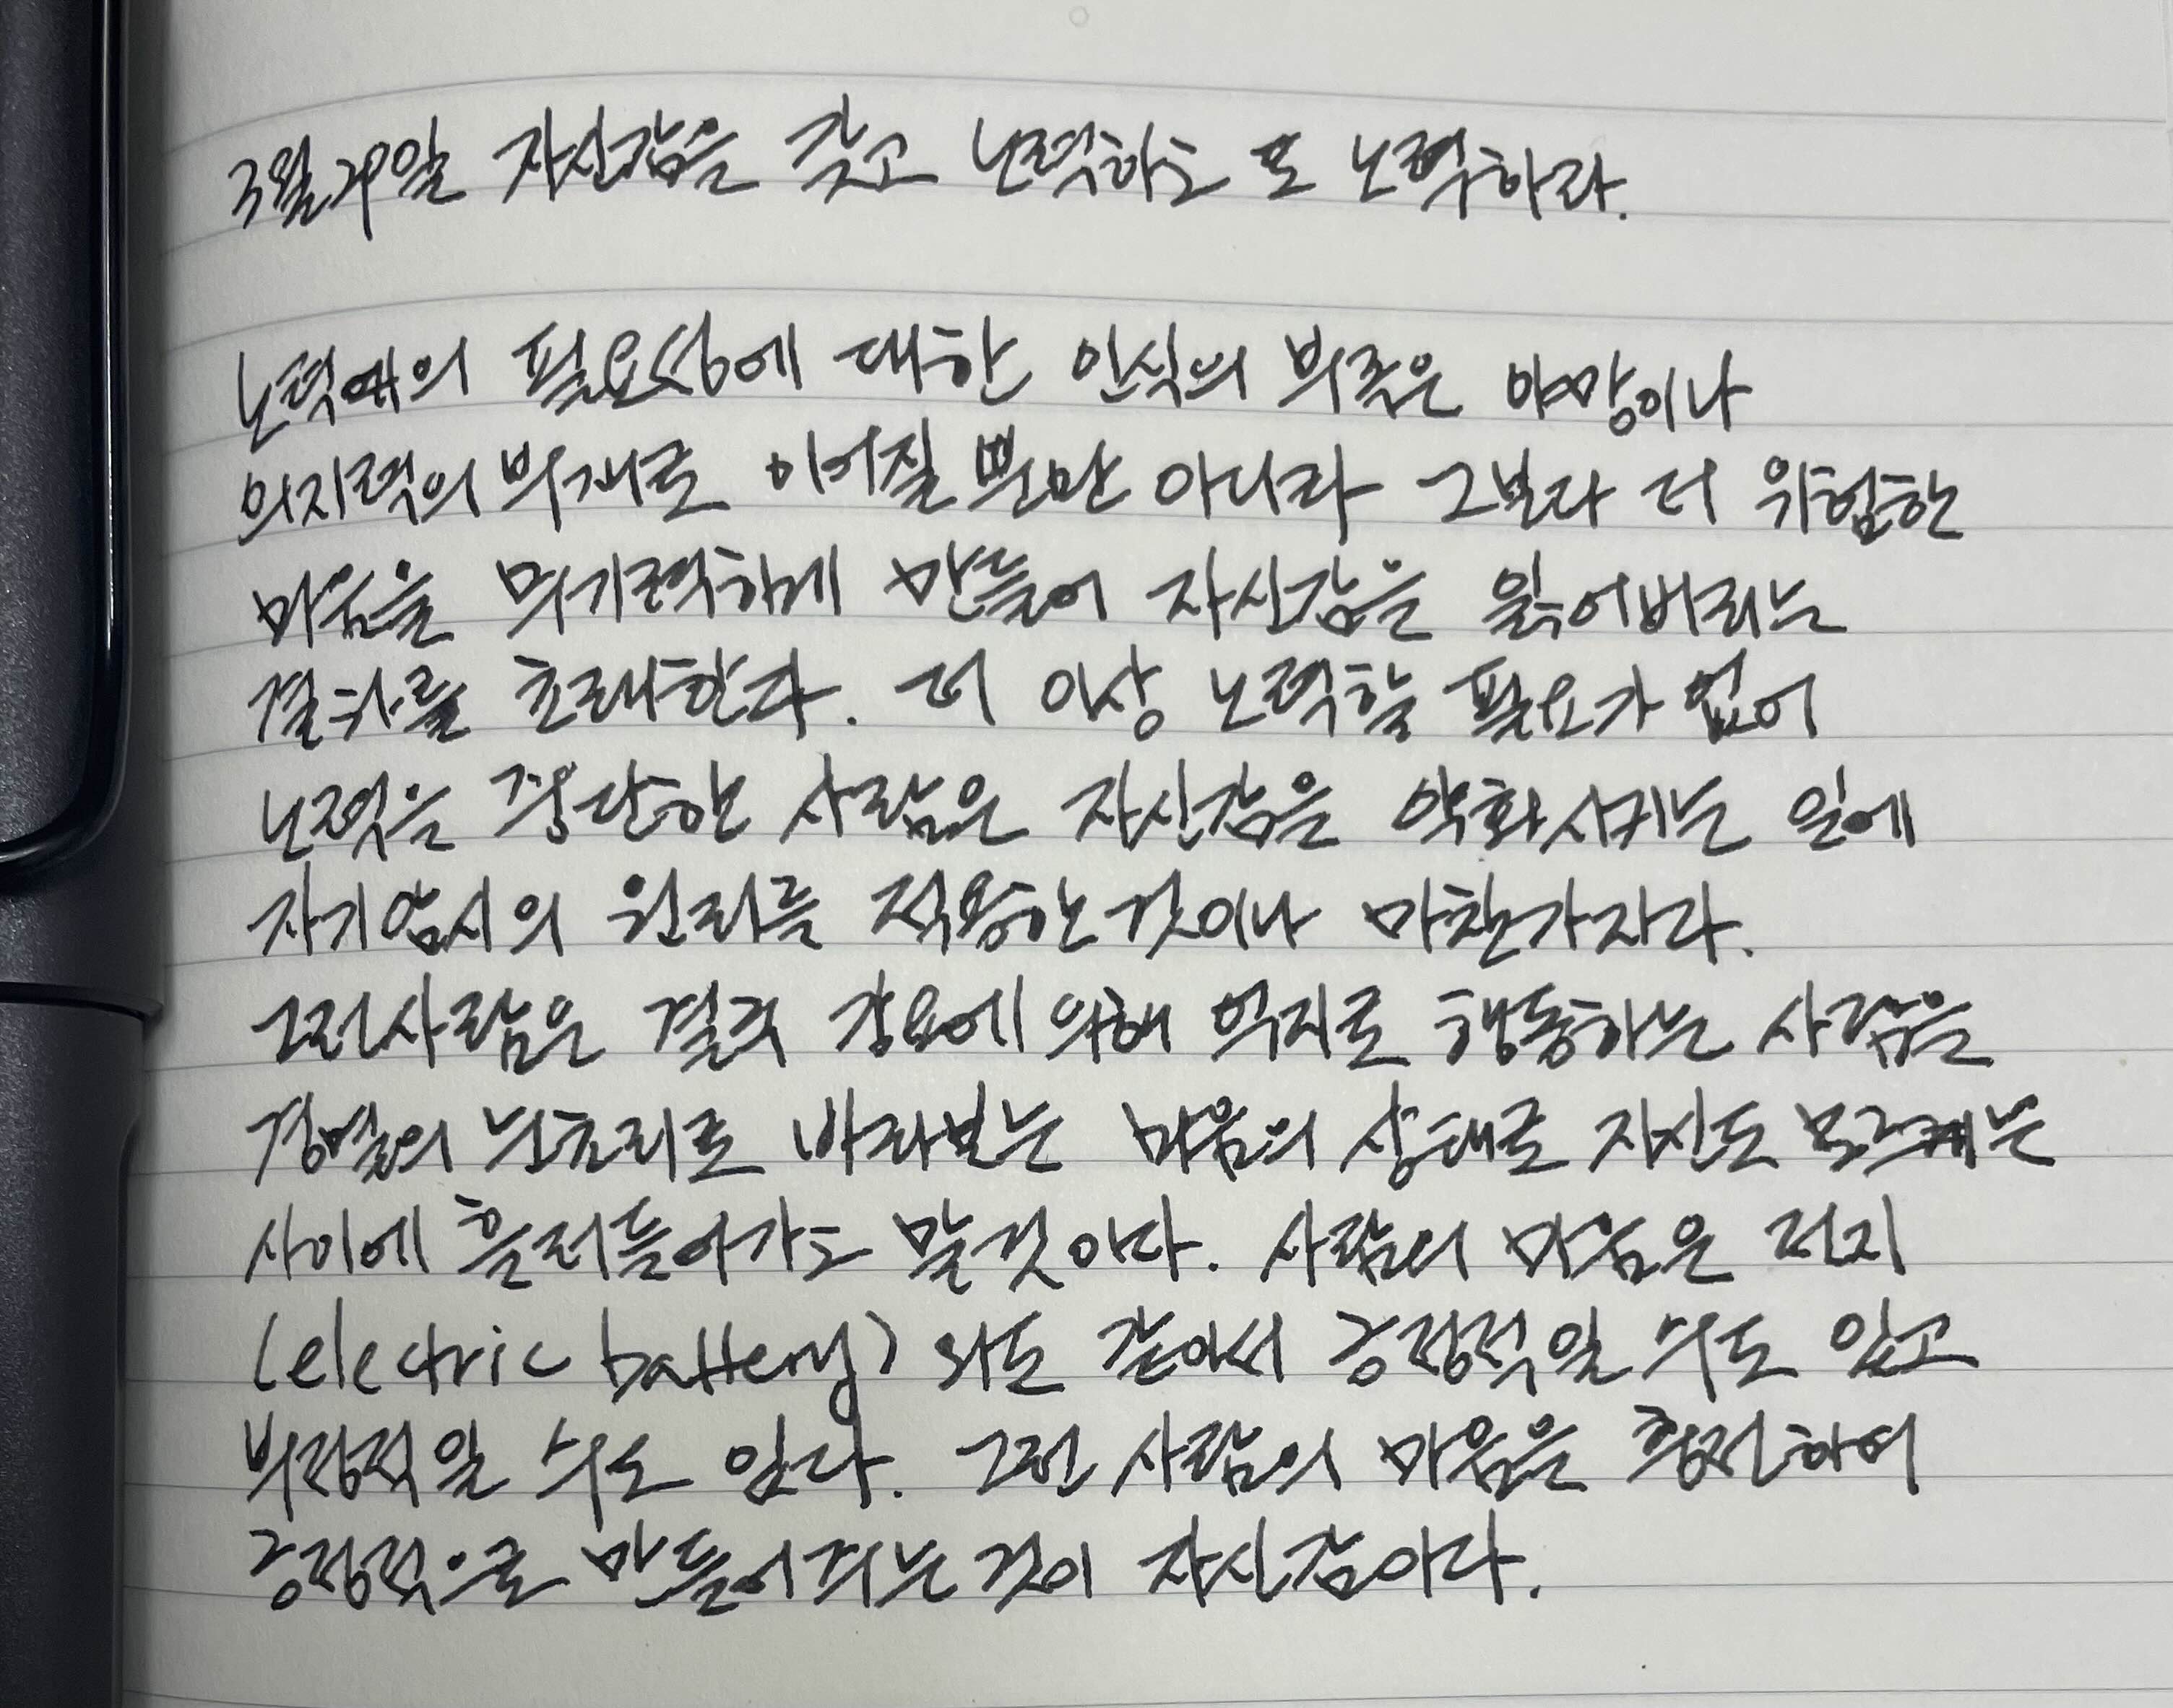 3월 29일 자신감을 갖고 노력하고 또 노력하라.
노력에의 필요성에 대한 인식의 부족은 야망이나
의지력의 부재로 이어질 뿐만 아니라 그보다 더 위험한
마음을 무기력하게 만들어 자신감을 잃어버리는
결과를 초래한다. 더 이상 노력할 필요가 없어
노력을 중단한 사람은 자신감을 약화시키는 일에
자기암시의 원리를 적용한 것이나 마찬가지다.
그런 사람은 결국 강요에 의해 억지로 행동하는 사람을
경멸의 눈초리로 바라보는 마음의 상태로 자신도 모르게는
사이에 흘러들어가고 말것이다. 사람의 마음은 전지
(electric battery)와도 같아서 긍정적일 수도 있고
부정적일 수도 있다. 그런 사람의 마음을 충전하여
긍정적으로 만들어주는 것이 자신감이다.